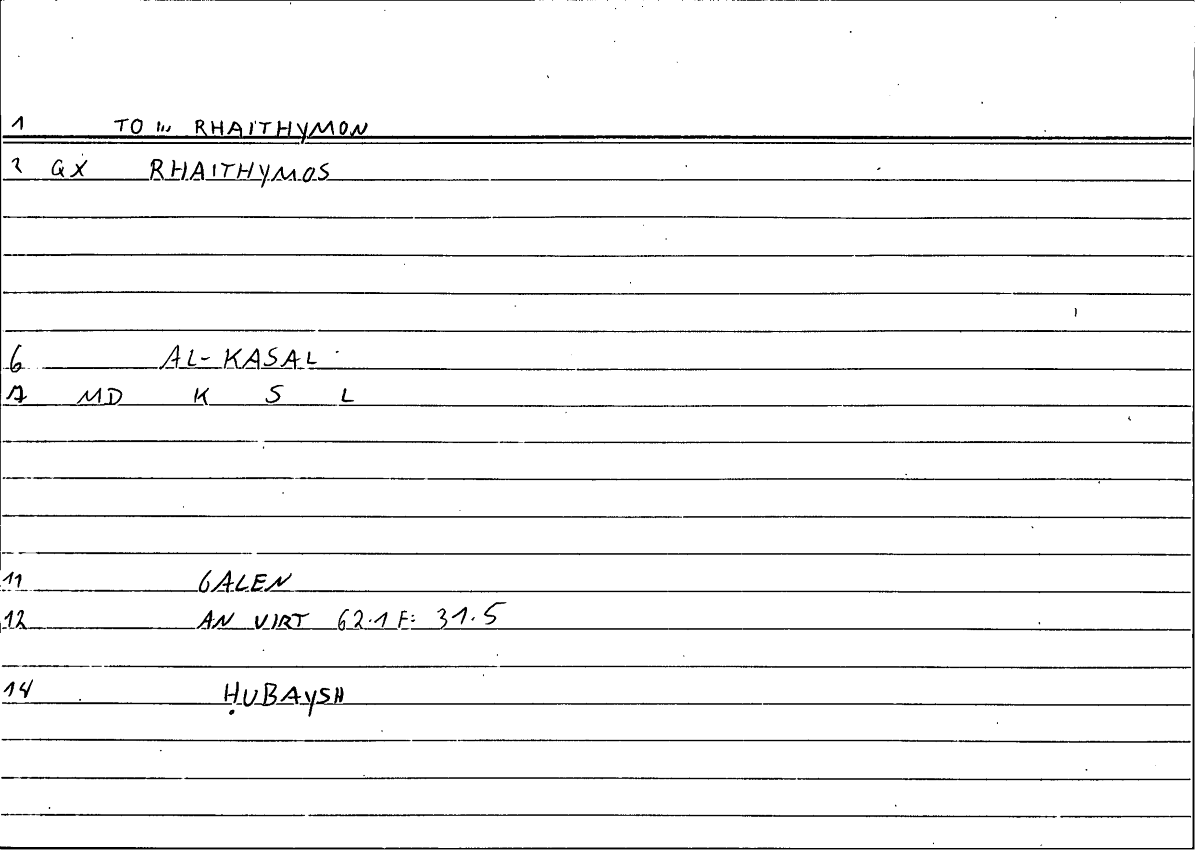 1 TO ... RHAITHYMON
2 GX RHAITHYMOS
6 AL-KASAL
7 MD K S L
11 GALEN
12 AN VIRT 62.1 F: 31.5
14 ḤUBAYSH